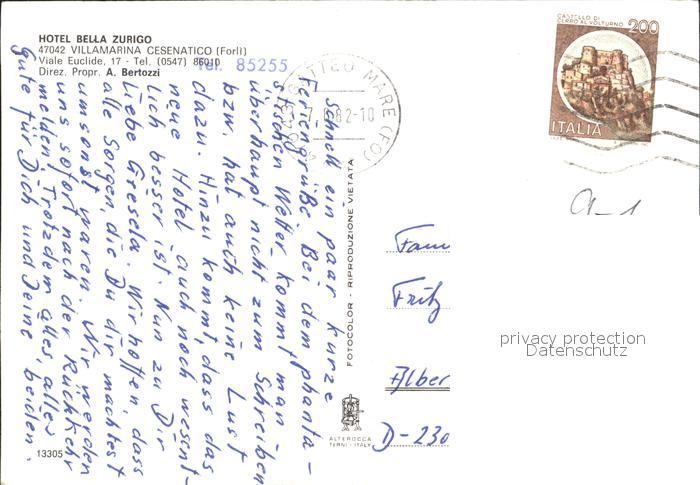 HOTEL BELLA ZURIGO
47042 VILLAMARINA CESENATICO (Forlì)
Viale Euclide, 17 - Tel. (0547) 86010
Tel. 85255
Direz. Propr. A. Bertozzi
Schnell ein paar kurze
Feriengrüße. Bei dem phanta-
stischen Wetter kommt man
überhaupt nicht zum Schreiben
bzw. hat auch keine Lust
dazu. Hinzu kommt, dass das
neue Hotel auch noch wesent-
lich besser ist. Nun zu Dir
liebe Gresela. Wir hoffen, dass
alle Sorgen, die Du dir machtest
umsonst waren. Wir werden
uns sofort nach der Rückkehr
melden. Trotzdem alles, alles
Gute für Dich und Deine beiden.
13305
FOTOCOLOR - RIPRODUZIONE VIETATA
ALTEROCCA
TERNI - ITALY
GATTEO MARE (FO)
82-10
CASTELLO DI
CERRO AL VOLTURNO
200
ITALIA
Fam
Fritz
Alber
D-230
privacy protection
Datenschutz